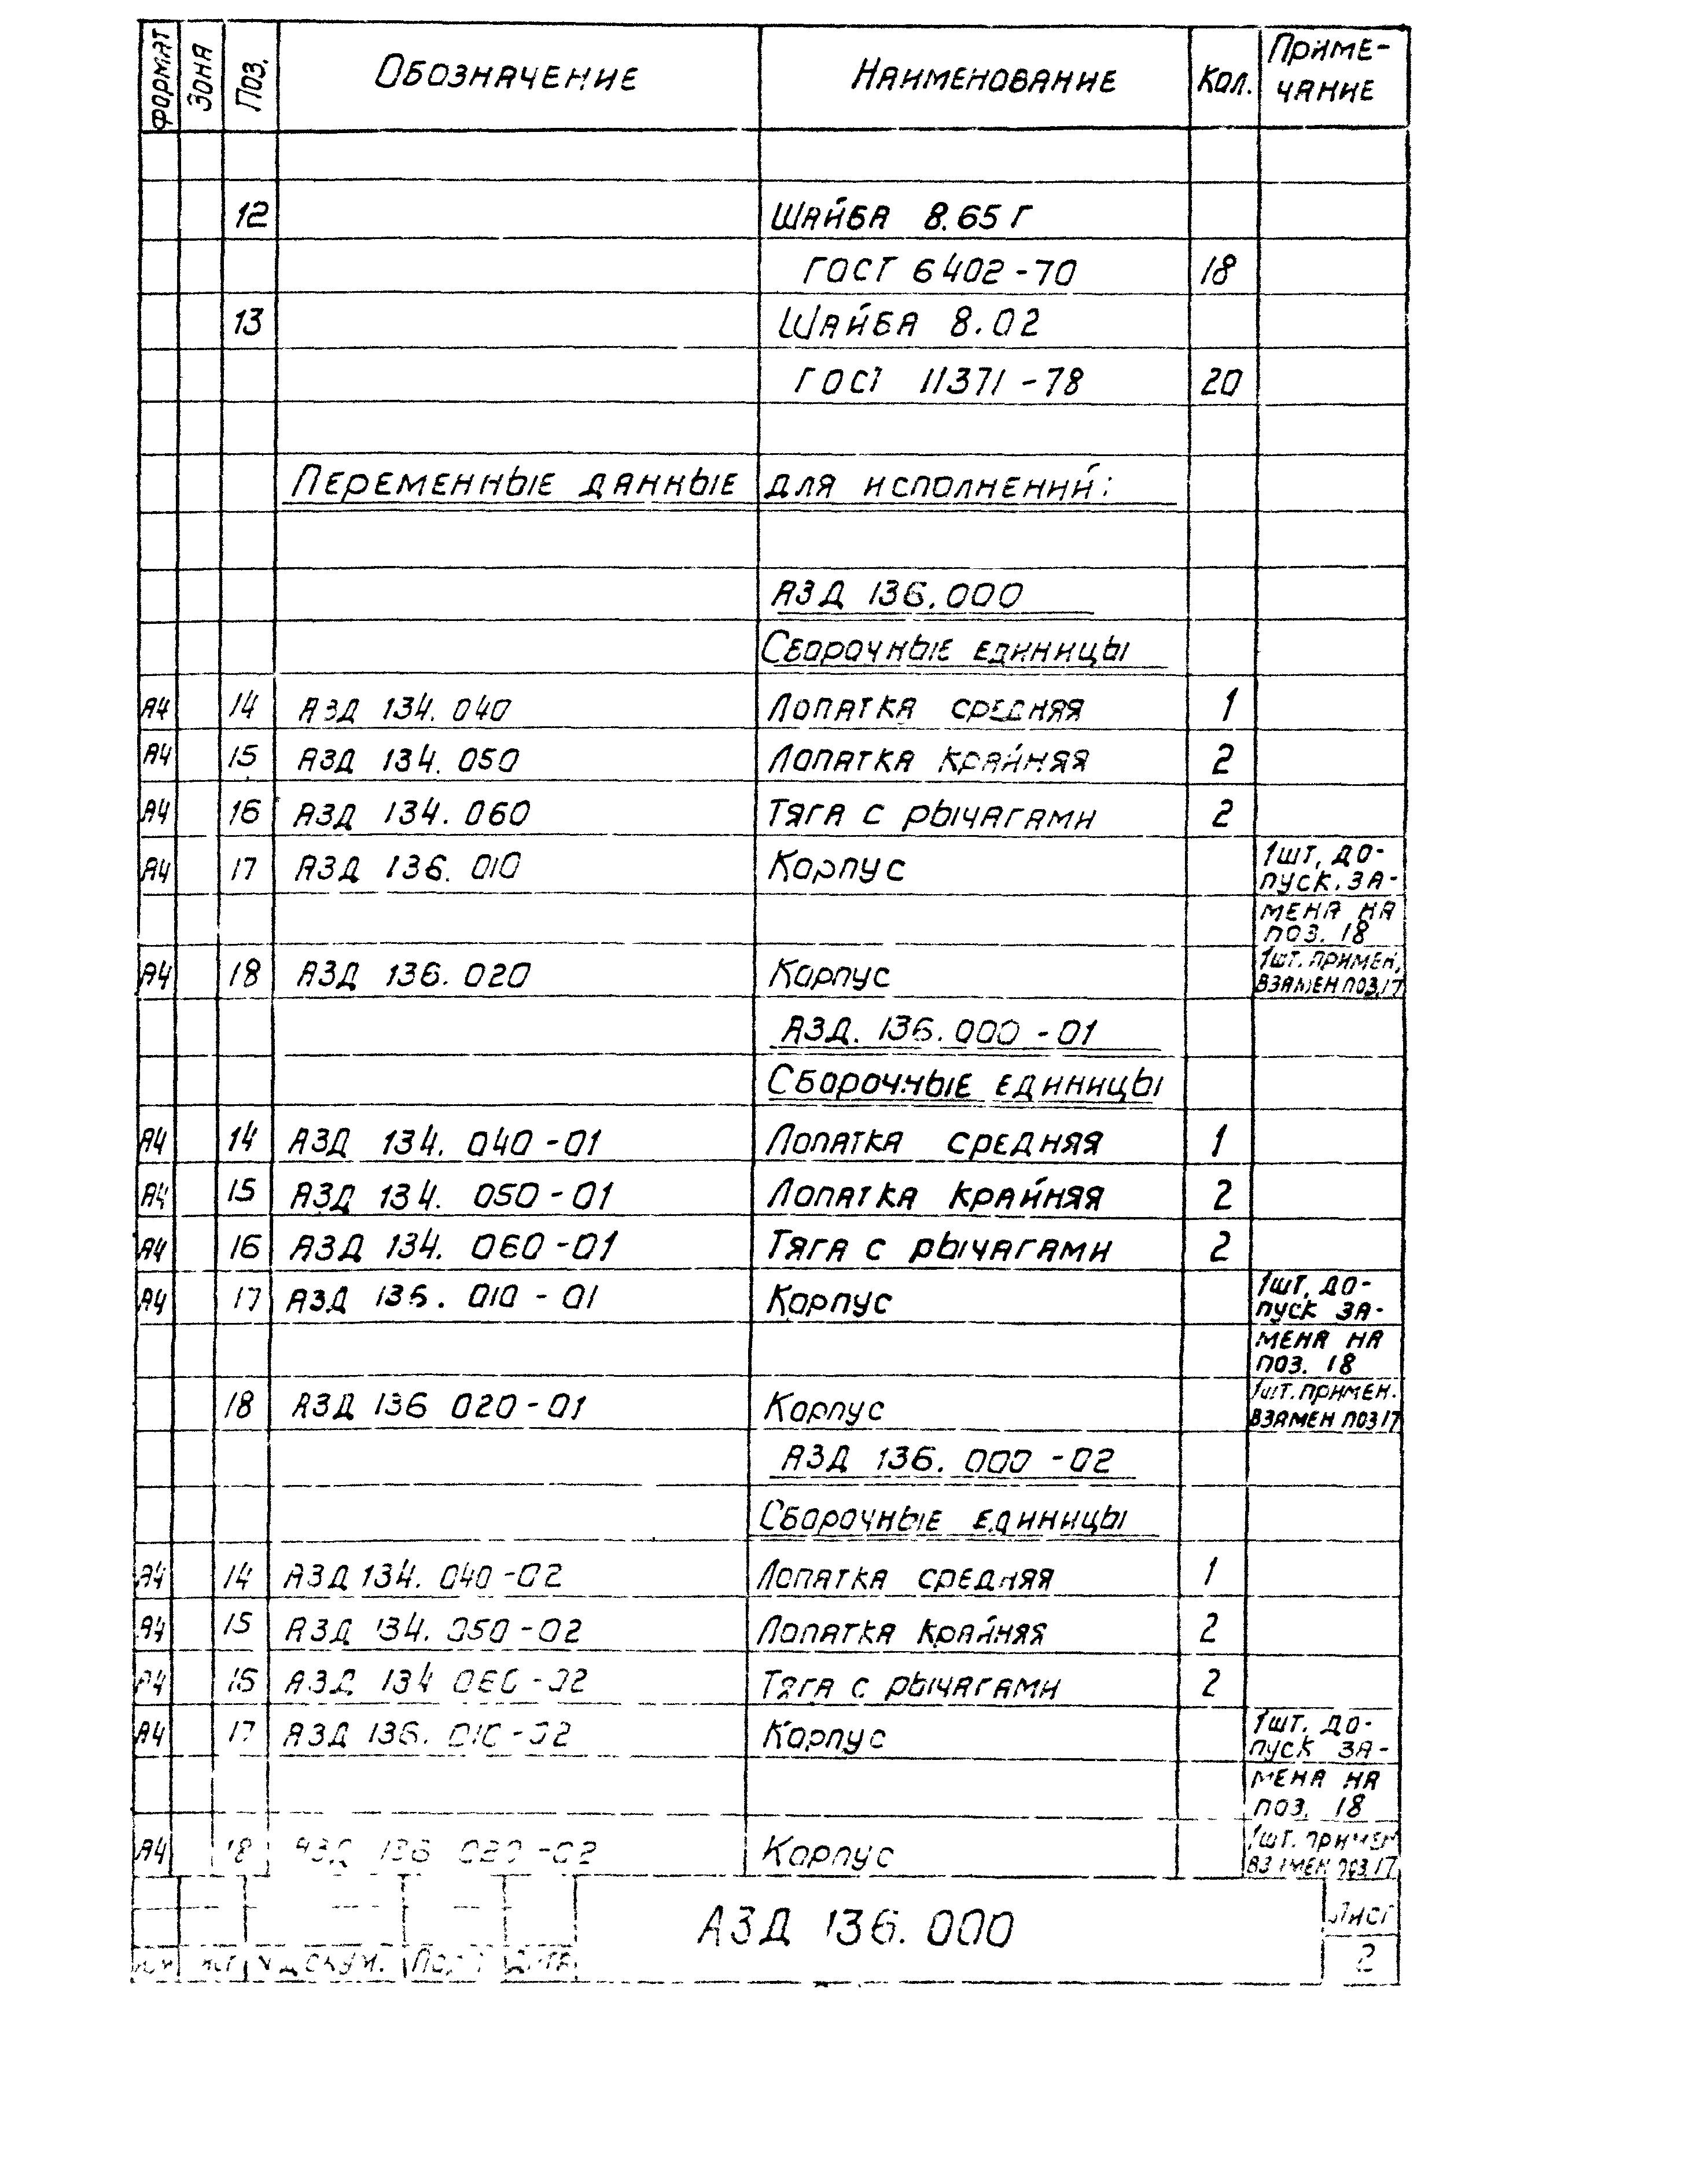 Формат Зона Поз. Обозначение Наименование Кол. Приме-
чание
12 Шайба 8.65 Г
ГОСТ 6402-70 18
13 Шайба 8.02
ГОСТ 11371-78 20
Переменные данные для исполнений:
АЗД 136.000
Сборочные единицы
А4 14 АЗД 134.040 Лопатка средняя 1
А4 15 АЗД 134.050 Лопатка крайняя 2
А4 16 АЗД 134.060 Тяга с рычагами 2
А4 17 АЗД 136.010 Корпус 1шт. до-
пуск. за-
мена на
поз. 18
А4 18 АЗД 136.020 Корпус 1шт. примен,
взамен поз.17
АЗД. 136.000-01
Сборочные единицы
А4 14 АЗД 134.040-01 Лопатка средняя 1
А4 15 АЗД 134.050-01 Лопатка крайняя 2
А4 16 АЗД 134.060-01 Тяга с рычагами 2
А4 17 АЗД 136.010-01 Корпус 1шт. до-
пуск за-
мена на
поз. 18
18 АЗД 136 020-01 Корпус 1шт. примен.
взамен поз17
АЗД 136.000-02
Сборочные единицы
А4 14 АЗД 134.040-02 Лопатка средняя 1
А4 15 АЗД 134.050-02 Лопатка крайняя 2
А4 16 АЗД 134 060-02 Тяга с рычагами 2
А4 17 АЗД 136.010-02 Корпус 1шт. до-
пуск за-
мена на
поз. 18
А4 18 АЗД 136 020-02 Корпус 1шт. примен
взамен поз.17
АЗД 136.000 Лист
2
докум.